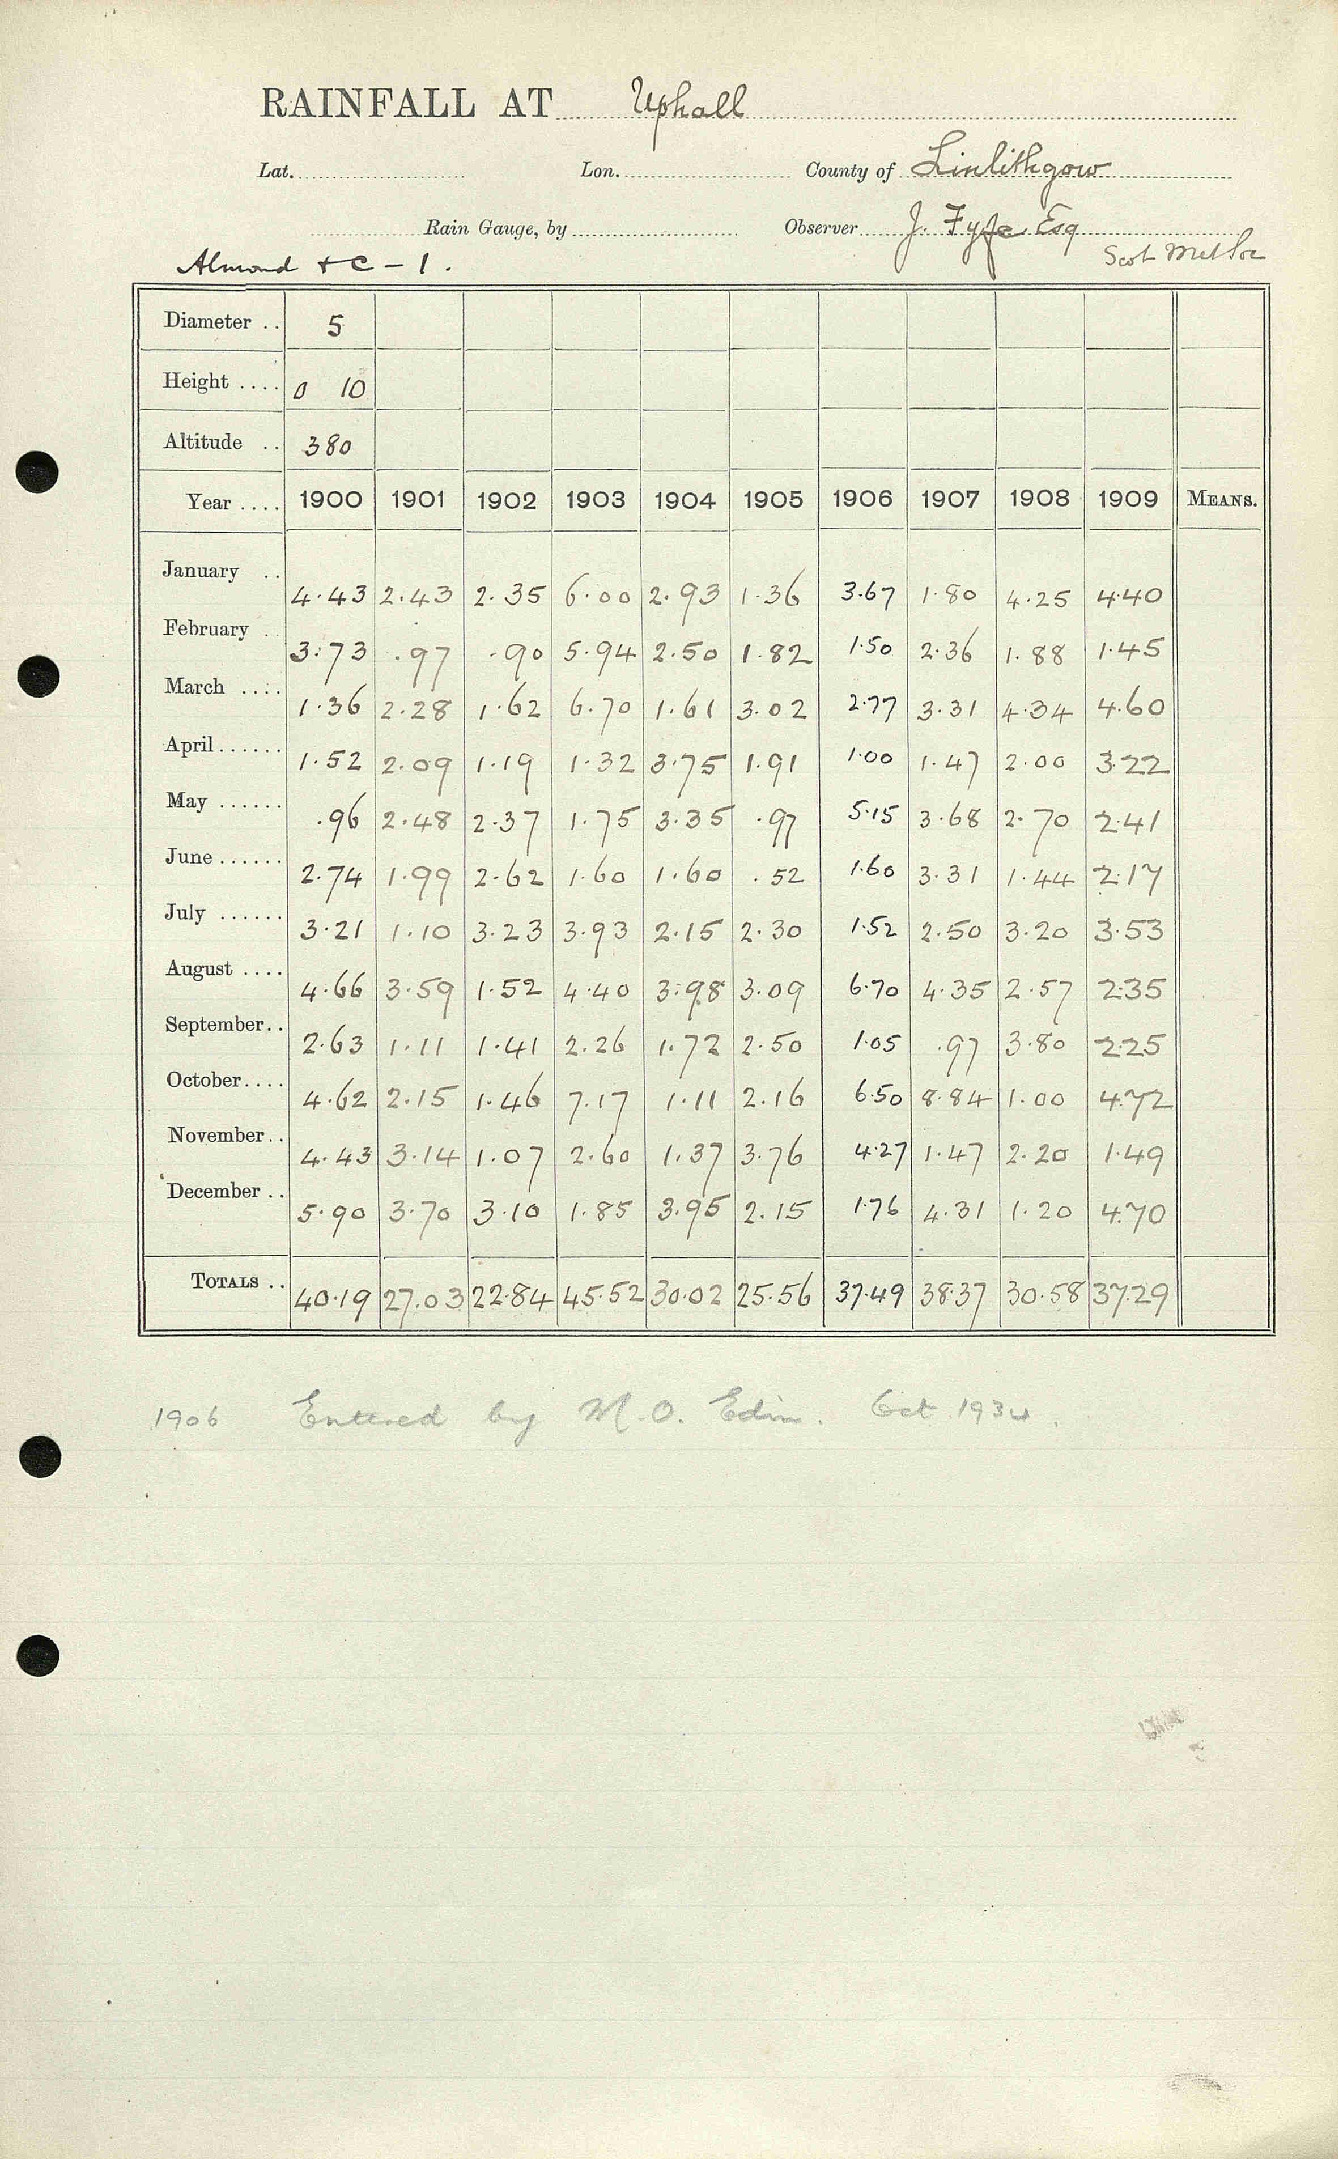 RAINFALL AT Uphall
Lat. Lon. County of Linlithgow
Rain Gauge, by Observer J. Fyfe Esq
Almond + C - 1. Scot Met Soc
Diameter .. 5
Height .... 0 10
Altitude .. 380
Year .... 1900 1901 1902 1903 1904 1905 1906 1907 1908 1909 MEANS.
January .. 4.43 2.43 2.35 6.00 2.93 1.36 3.67 1.80 4.25 4.40
February .. 3.73 .97 .90 5.94 2.50 1.82 1.50 2.36 1.88 1.45
March .... 1.36 2.28 1.62 6.70 1.61 3.02 2.77 3.31 4.34 4.60
April ...... 1.52 2.09 1.19 1.32 3.75 1.91 1.00 1.47 2.00 3.22
May ...... .96 2.48 2.37 1.75 3.35 .97 5.15 3.68 2.70 2.41
June ...... 2.74 1.99 2.62 1.60 1.60 .52 1.60 3.31 1.44 2.17
July ...... 3.21 1.10 3.23 3.93 2.15 2.30 1.52 2.50 3.20 3.53
August .... 4.66 3.59 1.52 4.40 3.98 3.09 6.70 4.35 2.57 2.35
September.. 2.63 1.11 1.41 2.26 1.72 2.50 1.05 .97 3.80 2.25
October.... 4.62 2.15 1.46 7.17 1.11 2.16 6.50 8.84 1.00 4.72
November.. 4.43 3.14 1.07 2.60 1.37 3.76 4.27 1.47 2.20 1.49
December .. 5.90 3.70 3.10 1.85 3.95 2.15 1.76 4.31 1.20 4.70
TOTALS .. 40.19 27.03 22.84 45.52 30.02 25.56 37.49 38.37 30.58 37.29
1906 Entered by M.O. Edin. Oct 1934.